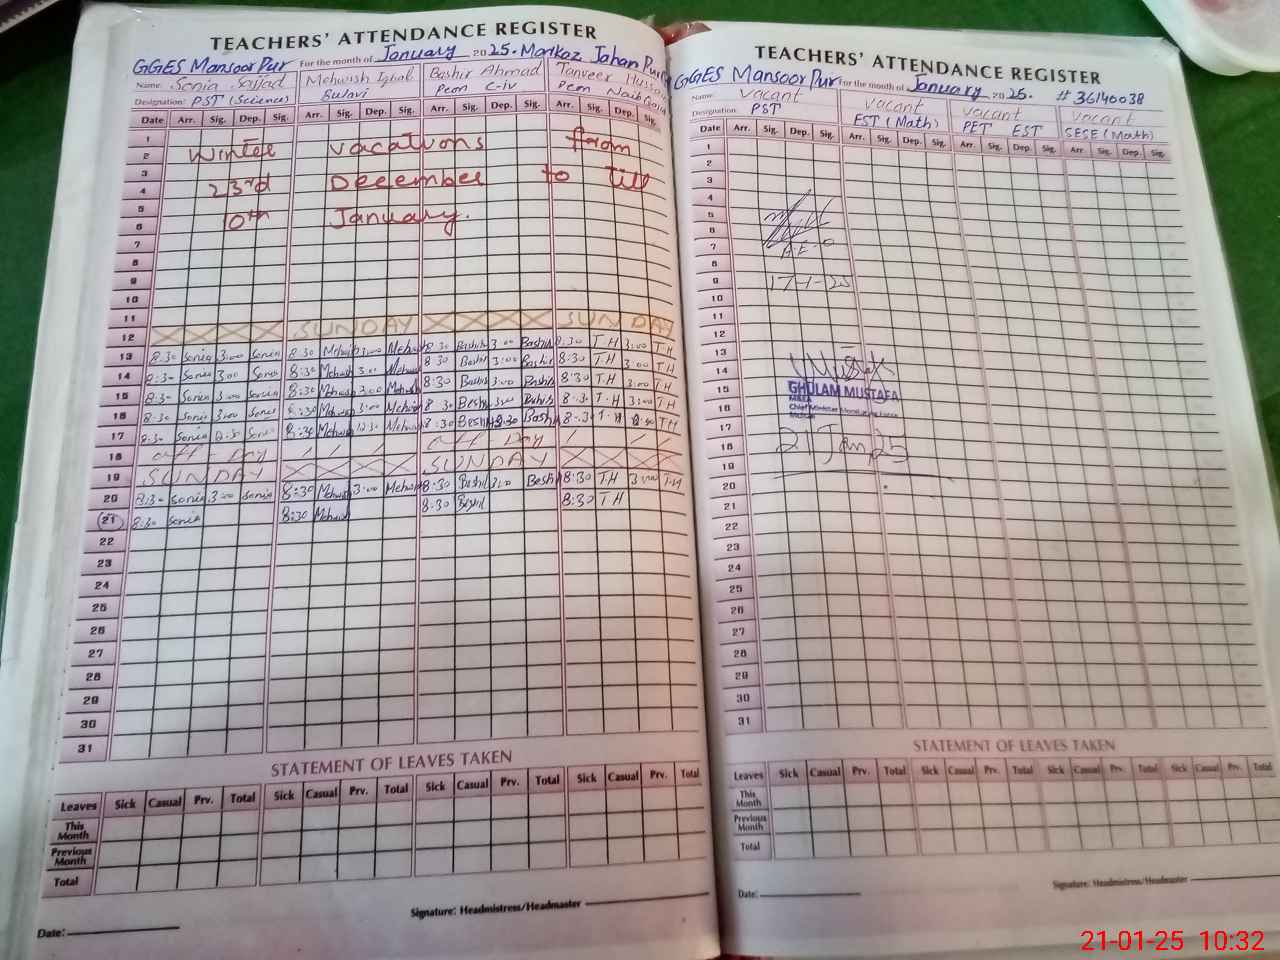 TEACHERS' ATTENDANCE REGISTER
GGES Mansoor Pur For the month of January 2025. Markaz Jahan Pur
Name: Sonia Sajjad Mehwish Iqbal Bashir Ahmad Tanveer Hussain
Designation: PST (Science) Peon C-iv Peon Naib Qasid
Date Arr. Sig. Dep. Sig. Arr. Sig. Dep. Sig. Arr. Sig. Dep. Sig. Arr. Sig. Dep. Sig.
1
2 Winter vacations from
3
4 23rd December to till
5
6 10th January.
7
8
9
10
11
12 SUNDAY SUNDAY
13 8:30 Sonia 3:00 Sonia 8:30 Mehwish 3:00 Mehwish 8:30 Bashir 3:00 Bashir 8:30 T.H 3:00 T.H
14 8:30 Sonia 3:00 Sonia 8:30 Mehwish 3:00 Mehwish 8:30 Bashir 3:00 Bashir 8:30 T.H 3:00 T.H
15 8:30 Sonia 3:00 Sonia 8:30 Mehwish 3:00 Mehwish 8:30 Bashir 3:00 Bashir 8:30 T.H 3:00 T.H
16 8:30 Sonia 3:00 Sonia 8:30 Mehwish 3:00 Mehwish 8:30 Bashir 3:00 Bashir 8:30 T.H 3:00 T.H
17 8:30 Sonia 12:30 Sonia 8:30 Mehwish 12:30 Mehwish 8:30 Bashir 12:30 Bashir 8:30 T.H T.H
18 off - Day off Day
19 SUNDAY SUNDAY
20 8:30 Sonia 3:00 Sonia 8:30 Mehwish 3:00 Mehwish 8:30 Bashir 3:00 Bashir 8:30 T.H 3:00 T.H
21 8:30 Sonia 8:30 Mehwish 8:30 Bashir 8:30 T.H
22
23
24
25
26
27
28
29
30
31
STATEMENT OF LEAVES TAKEN
Leaves Sick Casual Prv. Total Sick Casual Prv. Total Sick Casual Prv. Total Sick Casual Prv. Total
This Month
Previous Month
Total
Signature: Headmistress/Headmaster
Date:
TEACHERS' ATTENDANCE REGISTER
GGES Mansoor Pur For the month of January 2025. # 36140038
Name: Vacant Vacant Vacant Vacant
Designation: PST EST (Math) PET EST SESE (Math)
Date Arr. Sig. Dep. Sig. Arr. Sig. Dep. Sig. Arr. Sig. Dep. Sig. Arr. Sig. Dep. Sig.
1
2
3
4
5
6
7 A.E.O
8
9 17-1-25
10
11
12
13
14
15 GHULAM MUSTAFA
16 MEA
17
18 21 Jan, 25
19
20
21
22
23
24
25
26
27
28
29
30
31
STATEMENT OF LEAVES TAKEN
Leaves Sick Casual Prv. Total Sick Casual Prv. Total Sick Casual Prv. Total Sick Casual Prv. Total
This Month
Previous Month
Total
Date: Signature: Headmistress/Headmaster
21-01-25 10:32